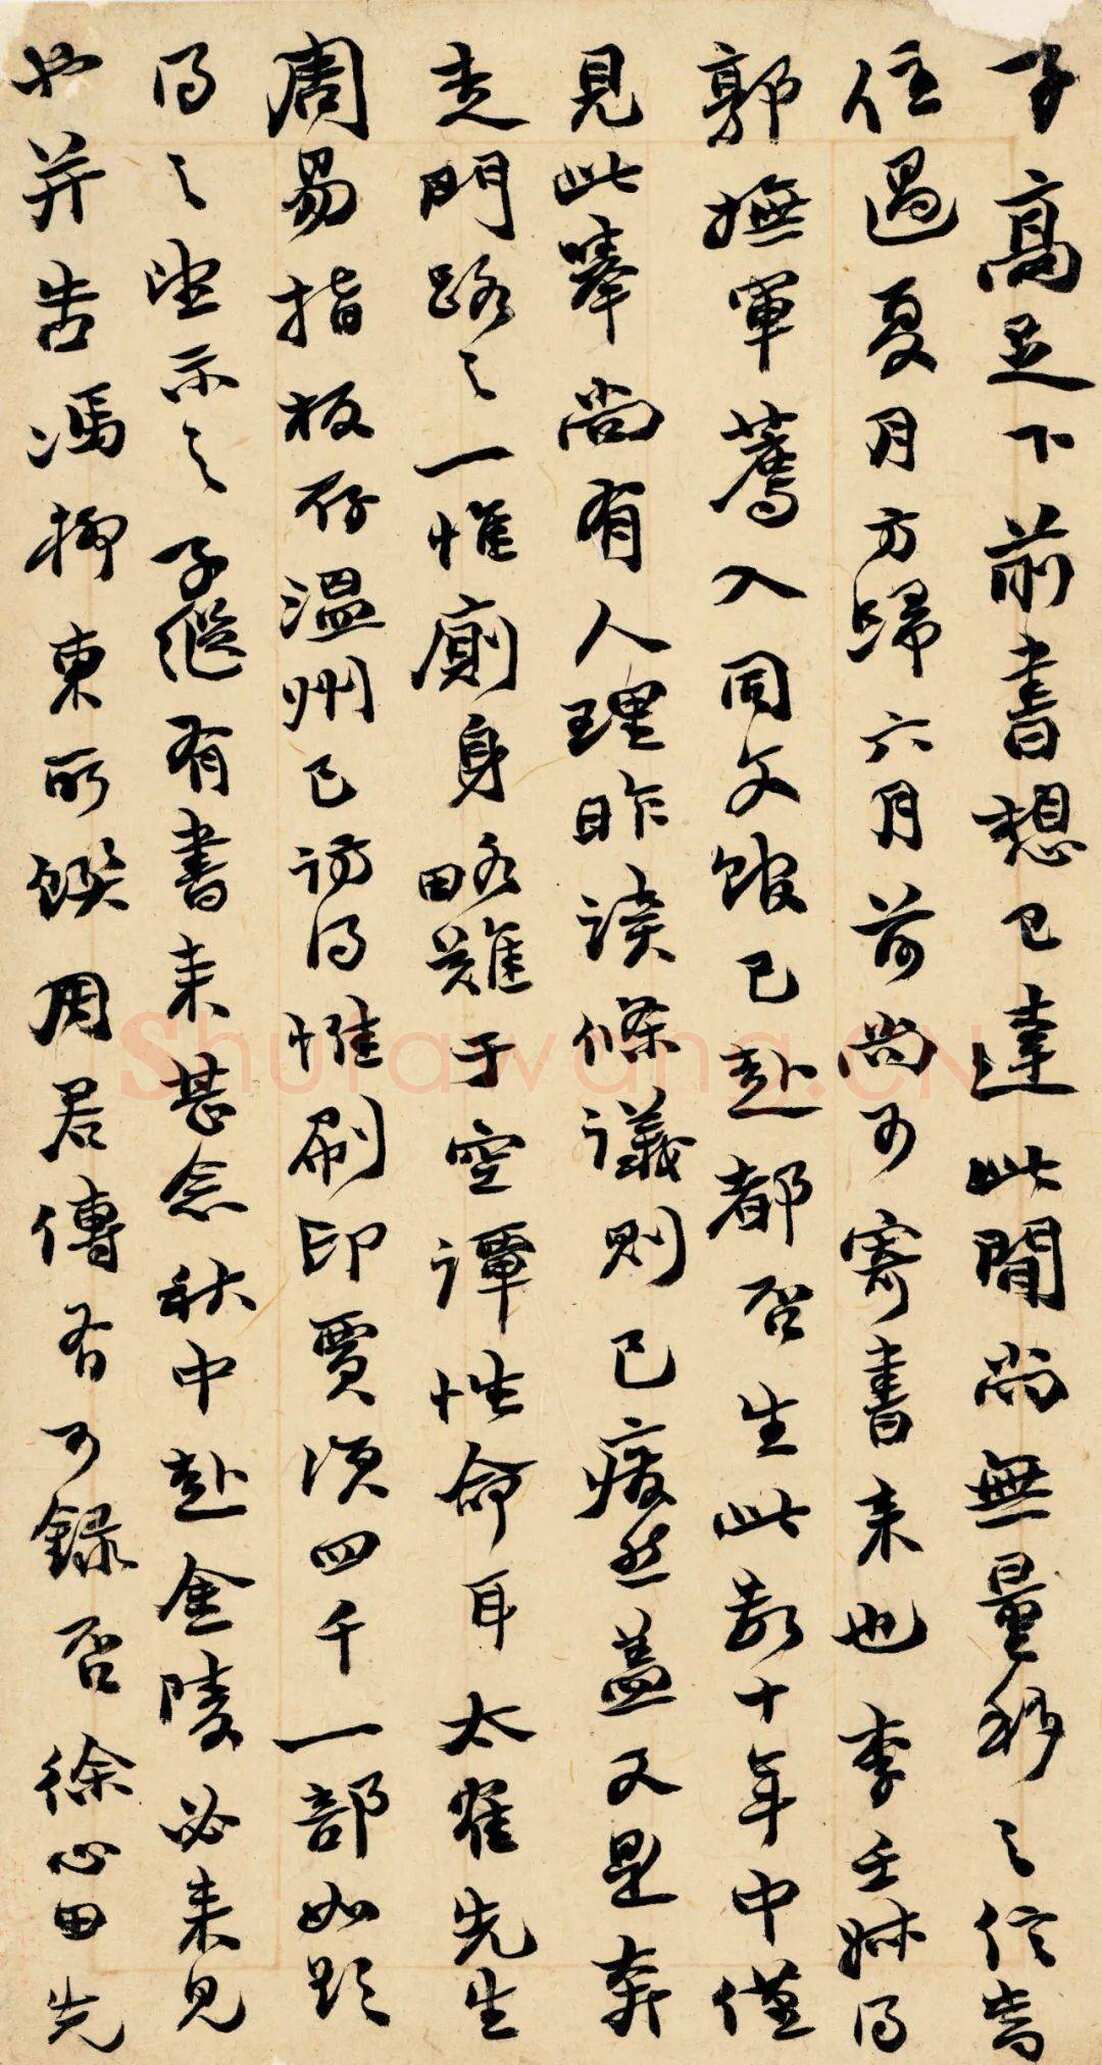 子高足下前書想已達此間尚無量移之信當
住過夏月方歸六月前尚可寄書来也李壬姊得
郭撫軍薦入同文館已赴都否生此數十年中僅
見此舉尚有人理昨讀條議則已廢然蓋又是奔
走門路之一惟廁身略難于空譚性命耳太隺先生
周易指板存溫州已訪得惟刷印賈須四千一部如欲
得之望示之子繼有書来甚念秋中赴金陵必来見
也并告馮柳東所饌周君傳者可錄否徐心田先
Shufawang.CN